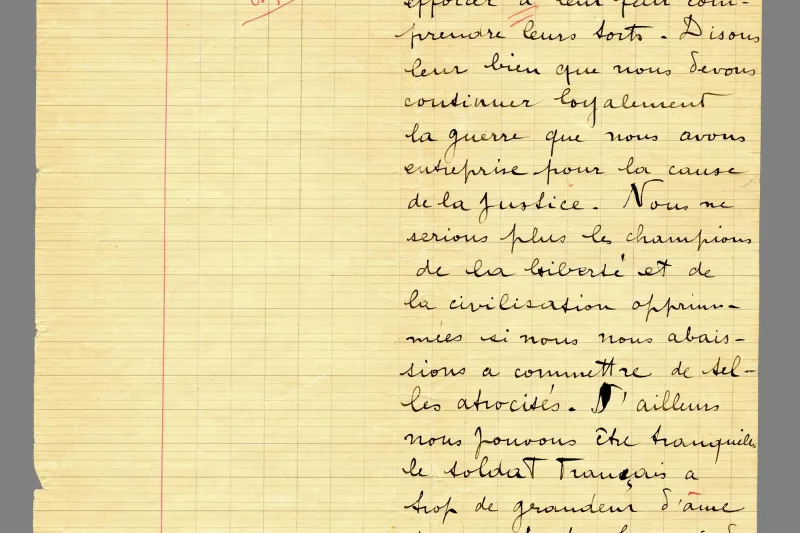 efforcer à leur fair com-
prendre leurs torts. Disons
leur bien que nous devons
continuer loyalement
la guerre que nous avons
entreprise pour la cause
de la justice. Nous ne
serions plus les champions
de la liberté et de
la civilisation opprim-
mées si nous nous abais-
sions a commettre de tel-
les atrocités. D'ailleurs
nous pouvons être tranquilles
le soldat français a
trop de grandeur d'âme